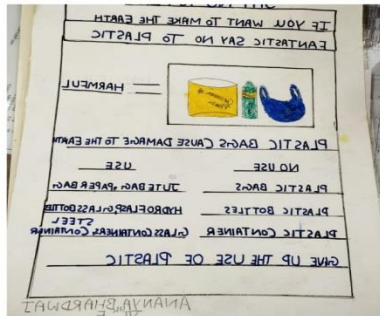 IF YOU WANT TO MAKE THE EARTH
FANTASTIC SAY NO TO PLASTIC
HARMFUL
PLASTIC BAGS CAUSE DAMAGE TO THE EARTH
NO USE USE
PLASTIC BAGS JUTE BAG, PAPER BAG
PLASTIC BOTTLES GLASS BOTTLES
STEEL
PLASTIC CONTAINER GLASS CONTAINERS, CONTAINER
GIVE UP THE USE OF PLASTIC
ANANYA BHARDWAJ